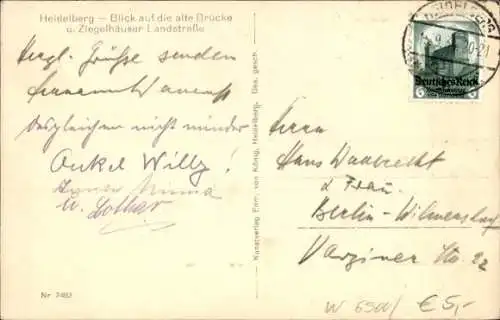 Heidelberg – Blick auf die alte Brücke
u. Ziegelhäuser Landstraße
Herzl. Grüße senden
desgleichen nicht minder
Onkel Willy!
u. Lothar
Kunstverlag Edm. von König, Heidelberg. Des. gesch.
Nr. 7462
Deutsches Reich
6
Herrn
Hans
u Frau.
Berlin-Wilmersdorf
Varziner Str. 22
W 6500/ €5,-